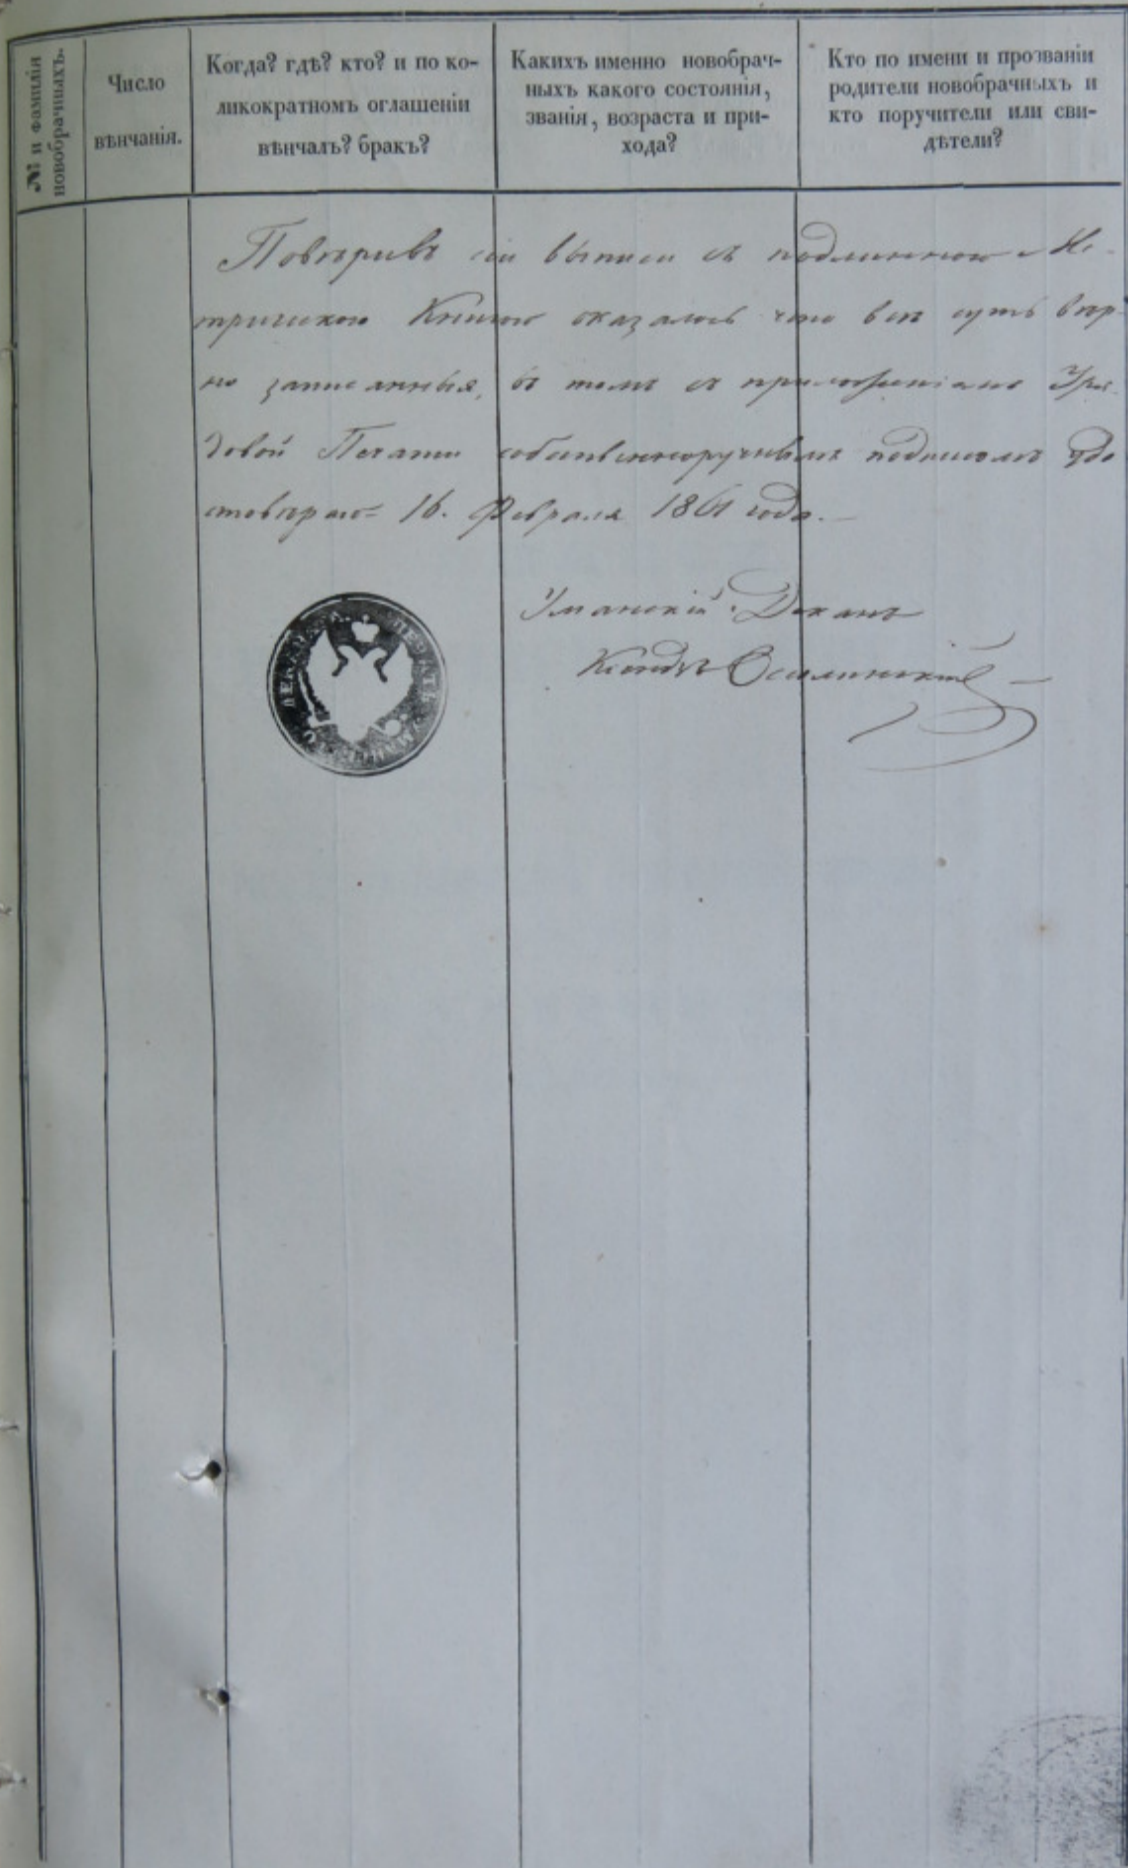 № и фамилія
новобрачныхъ.
Число
вѣнчанія.
Когда? гдѣ? кто? и по ко-
ликократномъ оглашеніи
вѣнчалъ? бракъ?
Какихъ именно новобрач-
ныхъ какого состоянія,
званія, возраста и при-
хода?
Кто по имени и прозваніи
родители новобрачныхъ и
кто поручители или сви-
дѣтели?
Повѣривъ сіи выписи съ подлинною Ме-
трическою Книгою оказалось что всѣ суть вѣр-
но записанныя, въ томъ съ приложеніемъ Уря-
довой Печати собственноручнымъ подписомъ удо
стовѣряю 16. Февраля 1861 года.
Уманскій Деканъ
Ксендзъ
ПЕЧАТЬ УМАНСКАГО ДЕКАНАТА.